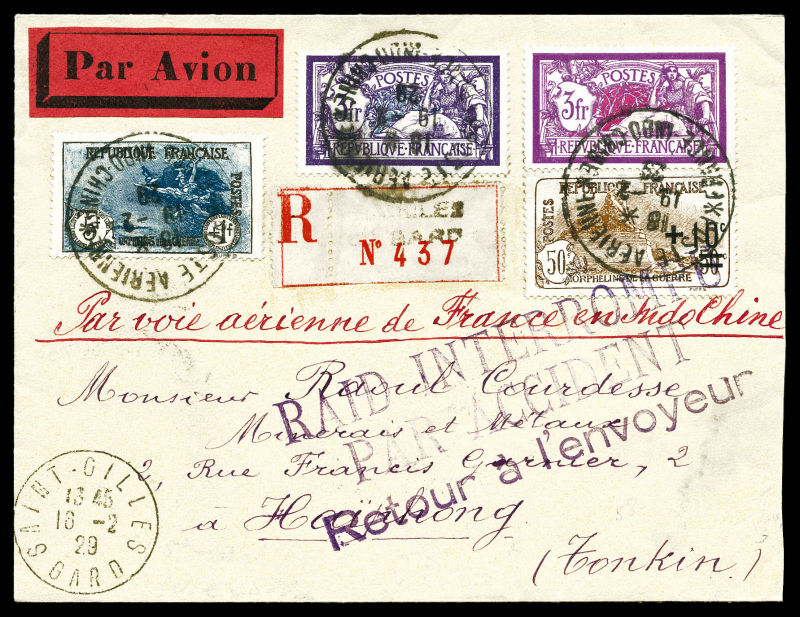 Par Avion
POSTES
RÉPUBLIQUE FRANÇAISE
POSTES
3fr
RÉPUBLIQUE FRANÇAISE
RÉPUBLIQUE FRANÇAISE
POSTES
+1f
RÉPUBLIQUE FRANÇAISE
POSTES
50
ORPHELINS DE LA GUERRE
+10c
R
GARD
No 437
Par voie aérienne de France en IndoChine
RAID INTERROMPU
PAR ACCIDENT
Retour à l'envoyeur
Monsieur Raoul Courdesse
Minerais et Métaux
2, Rue Francis Garnier, 2
à Haïphong
(Tonkin)
SAINT-GILLES
13 45
16 -2
29
GARD